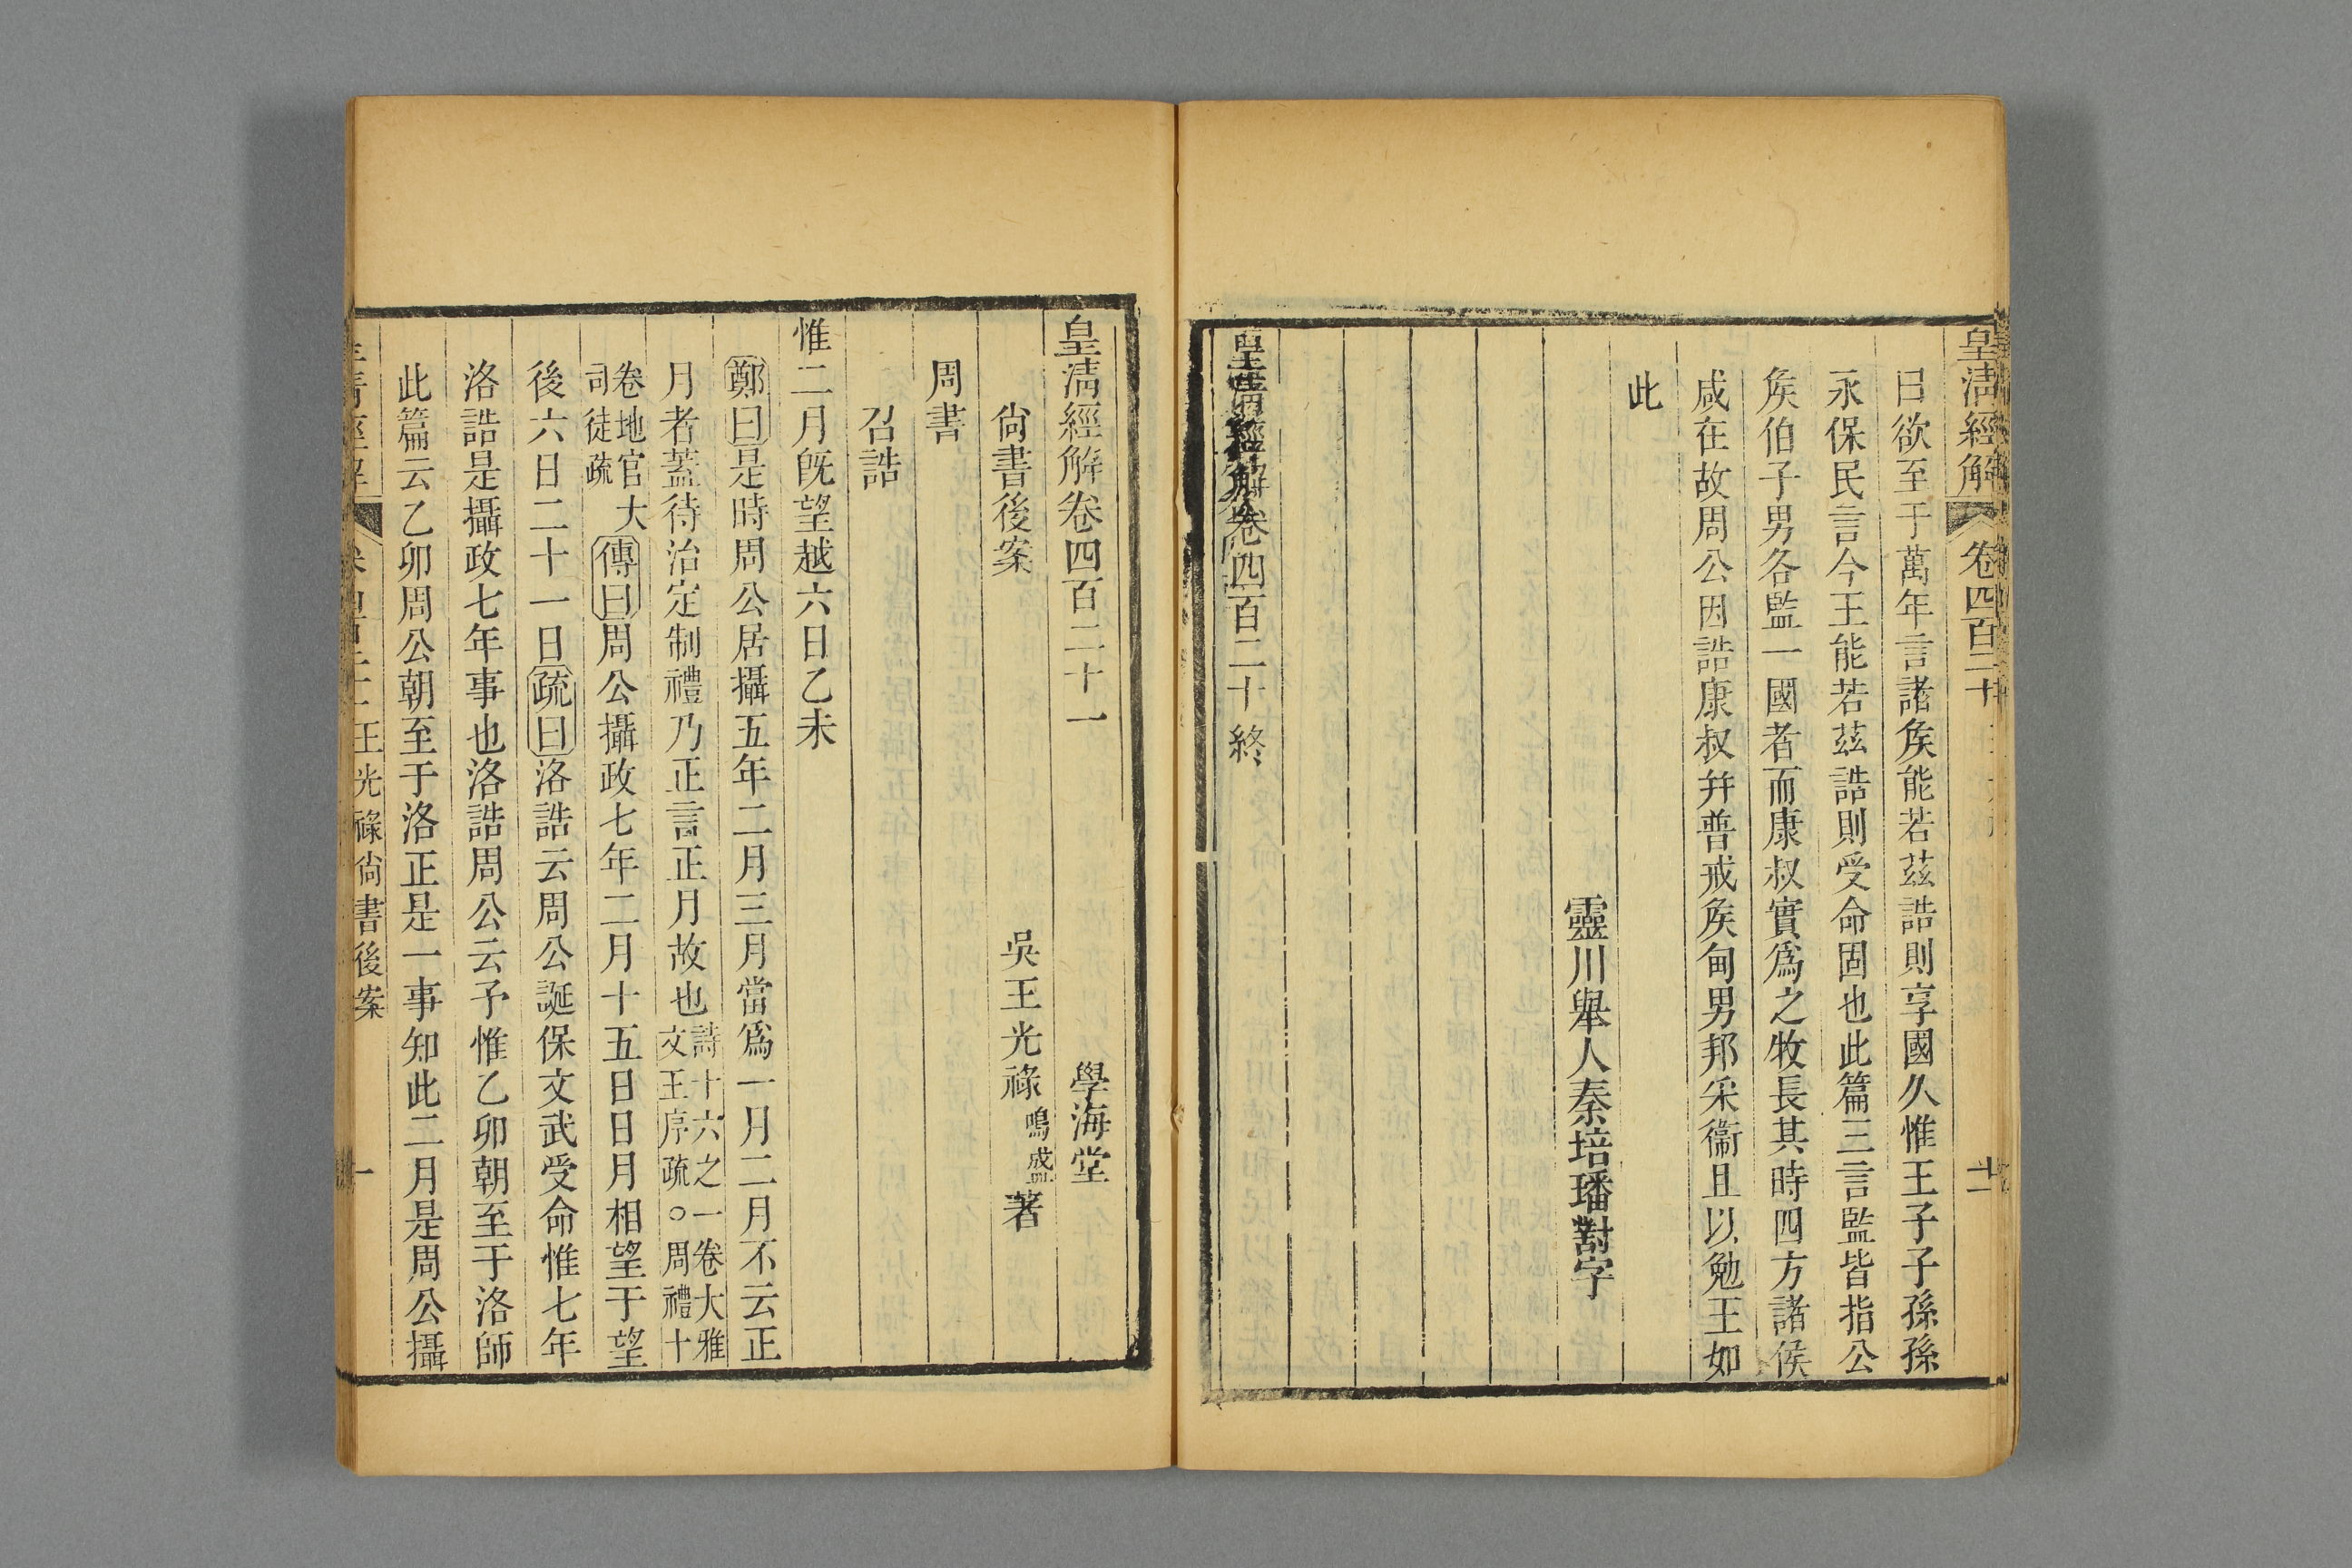 皇清經解 卷四百二十 十二
曰欲至于萬年言諸矦能若茲誥則享國久惟王子子孫孫
永保民言今王能若茲誥則受命固也此篇三言監皆指公
矦伯子男各監一國者而康叔實爲之牧長其時四方諸侯
咸在故周公因誥康叔幷普戒矦甸男邦采衞且以勉王如
此
靈川舉人秦培璠對字
皇清經解卷四百二十終
皇清經解卷四百二十一 學海堂
尙書後案 吳王光祿鳴盛著
周書
召誥
惟二月旣望越六日乙未
鄭曰是時周公居攝五年二月三月當爲一月二月不云正
月者蓋待治定制禮乃正言正月故也詩十六之一卷大雅文王序疏○周禮十
卷地官大司徒疏傳曰周公攝政七年二月十五日日月相望于望
後六日二十一日疏曰洛誥云周公誕保文武受命惟七年
洛誥是攝政七年事也洛誥周公云予惟乙卯朝至于洛師
此篇云乙卯周公朝至于洛正是一事知此二月是周公攝
皇清經解 卷四百二十一 王光祿尙書後案 一